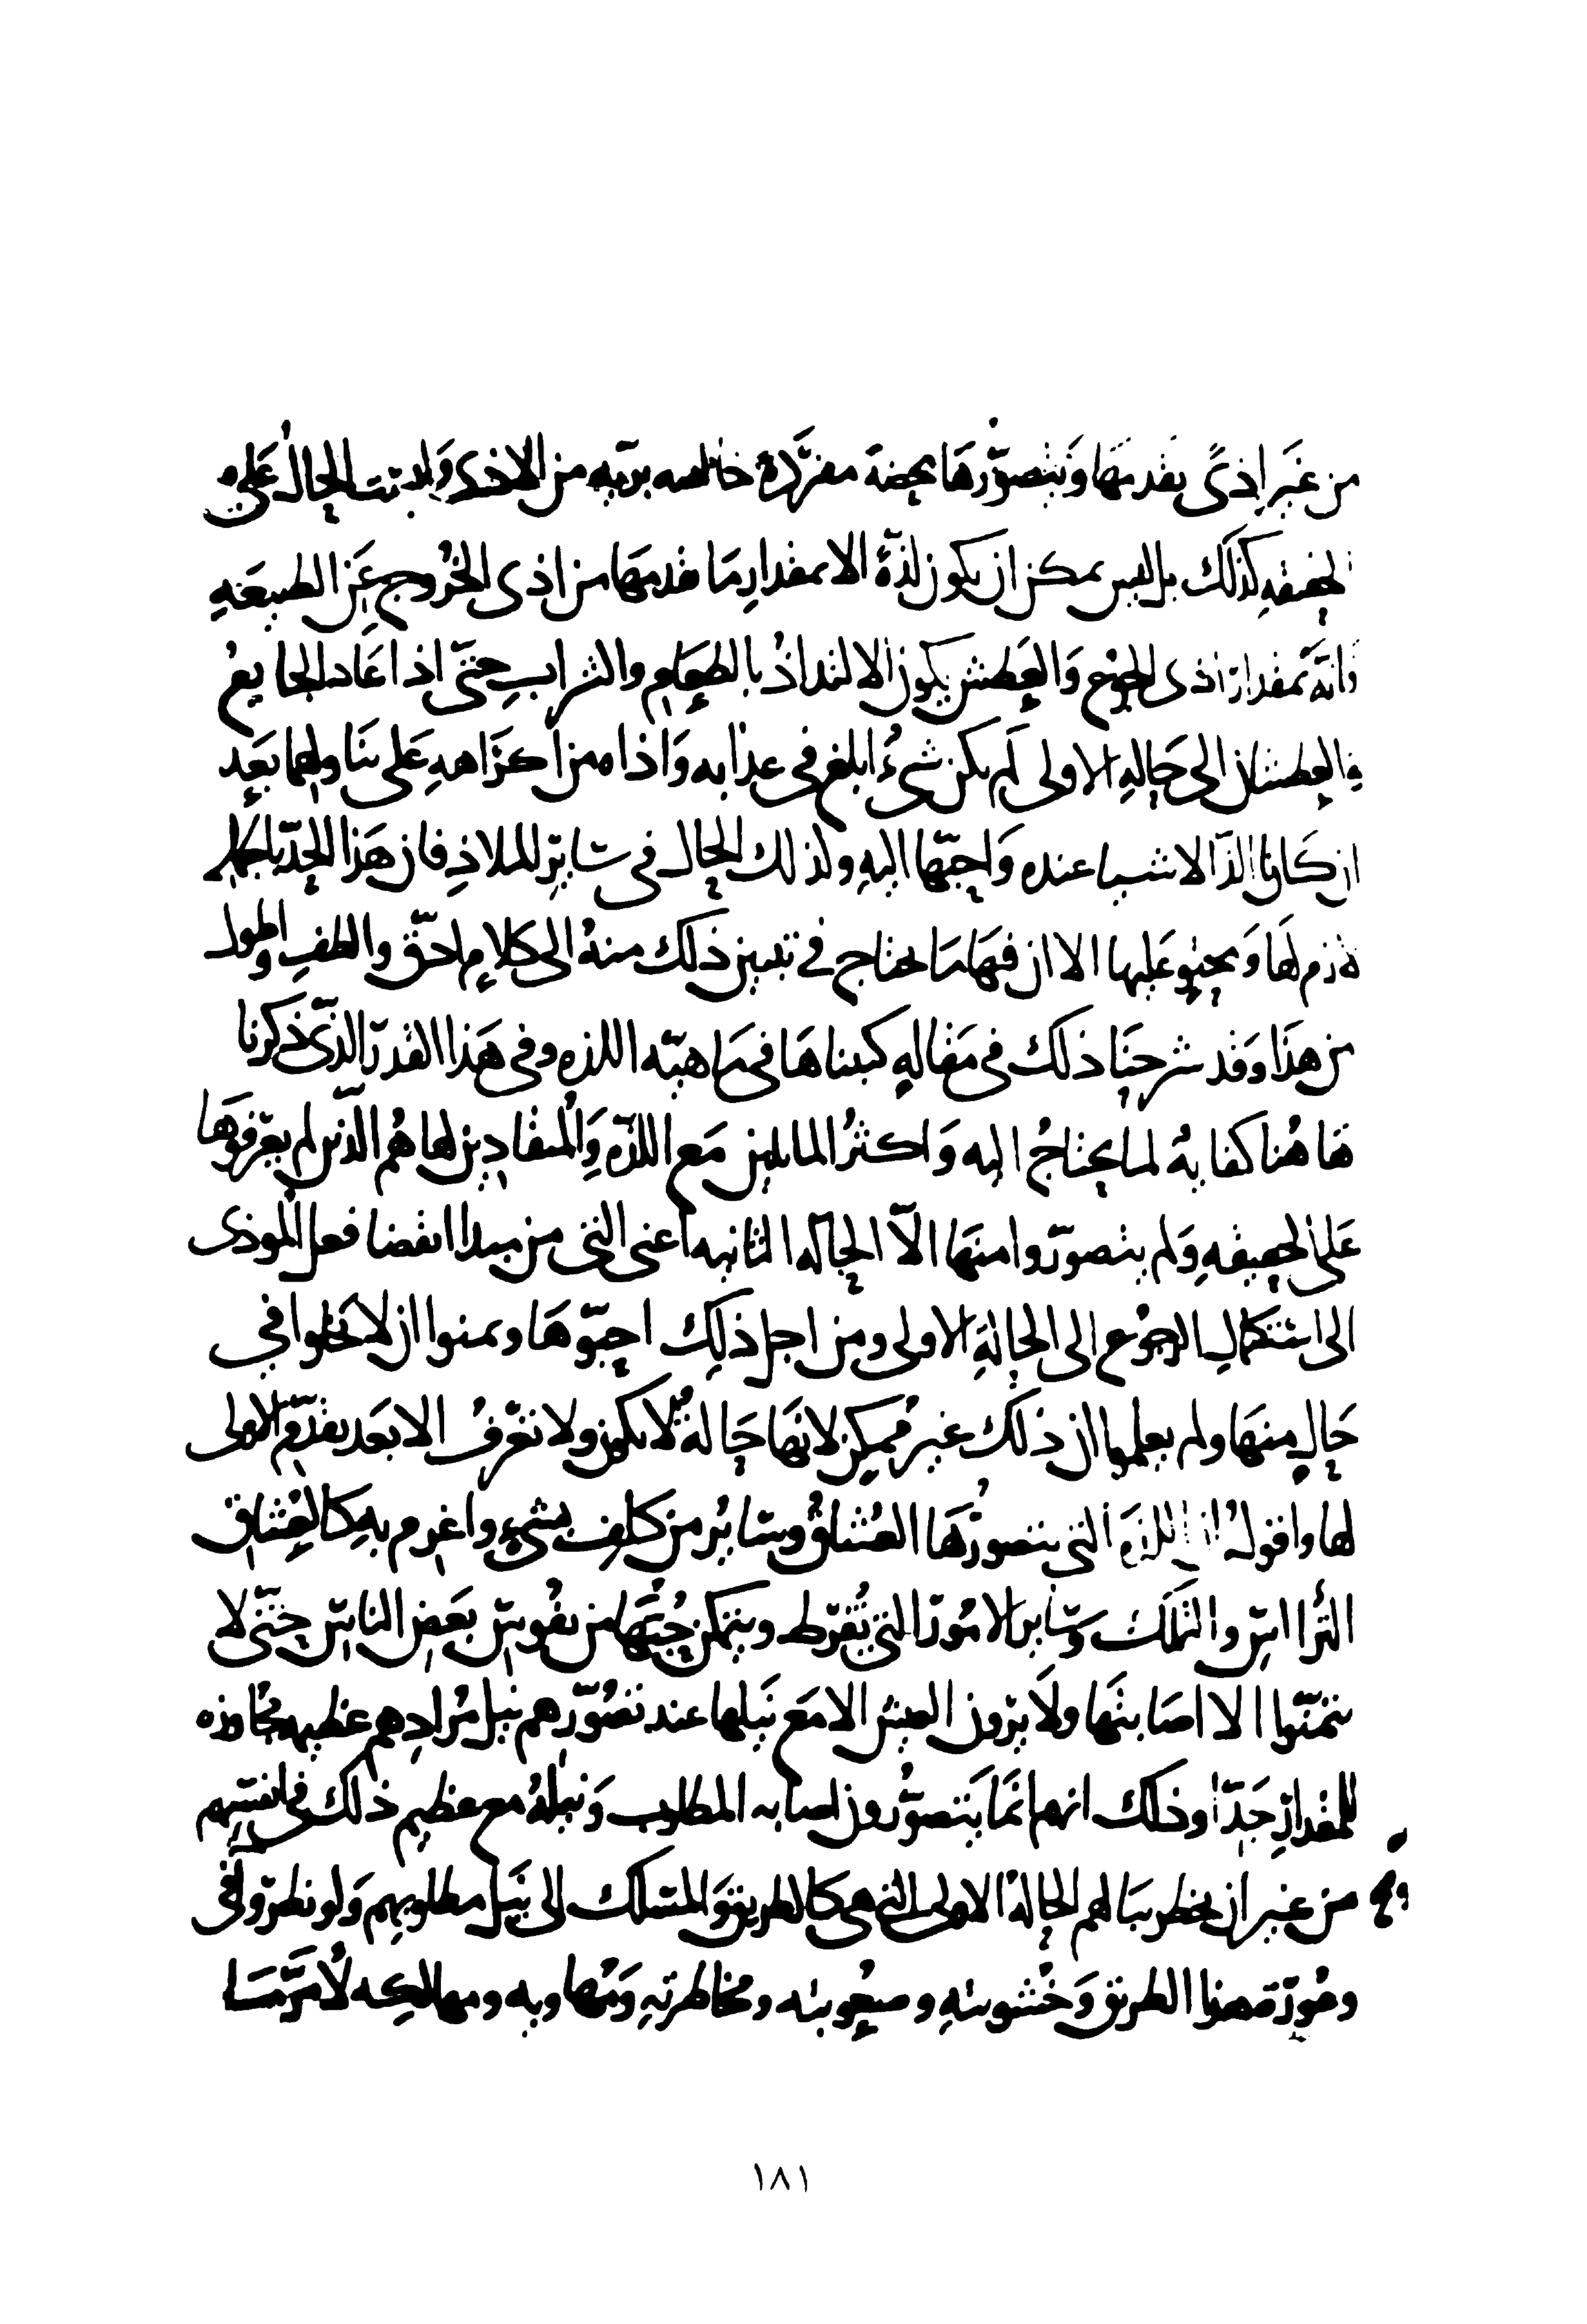 من غير اذىً تقدمها وَيتصوّرها محضة مفرَدة خالصه بريّه من الاذى وَليست الحال على
الحقيقهِ كذلك بل ليس يمكن ان يكون لذّة الا بمقدارِ مَا تقدمها من اذى الخُروج عَن الطبيعَهِ
فانّه بمقدار اذى الجوُع وَالعَطش يكون الالتذاذُ بالطعَامِ والشرابِ حتّى اذا عَاد الجايعُ
والعطشان الى حَالهِ الاولى لم يكن شىءُ ابلغ فى عذابه وَاذاه من اكرَاههِ عَلى تنَاولهما بَعد
ان كَانا الذّ الاشيا عنده وَاحبّها اليهِ وكذلك الحال فى سَايرِ الملاذِ فان هَذا الحدّ بالجمله
لازم لهَا وَمحتوٍ عَليها الا ان فيهَا مَا يحتاج فى تبيين ذلك منهُ الى كلامٍ ادقّ والطفِ واطول
من هذَا وَقد شرحنَا ذلك فى مَقالهٍ كتبناها فى مَاهيّه اللذه وفى هَذا القدرِ الذّى ذكرنا
هَاهُنا كفايهُ لما يحتاجُ اليه وَاكثرُ المايلين مَع اللذّه وَالمنقادِين لها هُم الذّين لم يعرفوهَا
عَلى الحقيقهِ وَلم يتصوّروا منهَا الّا الحاله الثانيه اعنى التى من مبدا انقضا فعل الموذى
الى استكمالِ الرجوُع الى الحالةِ الاولى ومن اجل ذلِك احبّوهَا وتمنوا ان لا يَخلوا فى
حَالٍ منهَا ولم يعلموا ان ذلك غير مُمكِن لانهَا حَالةٌ لا تكون ولا تعْرفُ الا بعَد تقدّمِ الاولى
لها واقولُ ان اللذه التى يتصورُهَا العُشاقُ وسَايُر من كلِف بشىءٍ واغرم بهِ كالعُشاقِ
الترااسِ والتملك وسَايرِ الامُورِ التى يُفرط ويتمكن حُبُّهَا من نفُوسِ بعَض الناسِ حتّى لا
يتمنّوا الا اصَابتهَا ولَا يرَون العيش الا مَع نَيلها عند تصَوُّرهم نيل مُرادِهم عظيمه مجُاوزه
للمقدارِ جَدّاً وذلك انهم انّمَا يَتصوُّرون اصابه المطلوب وَنيلهُ مع عظيمِ ذلك فى انفسِهم
من غير ان يخطر ببَالهم الحالهُ الاولى التى هى كالطريق وَالمسلك الى نيَل مطلوبهم وَلو نظروا فى
وعُورة هذا الطريق وَخُشونتهِ وصعُوبته ومخاطرتهِ وَمَهاويه ومهالكِه لَامَرَّ مَا
١٨١